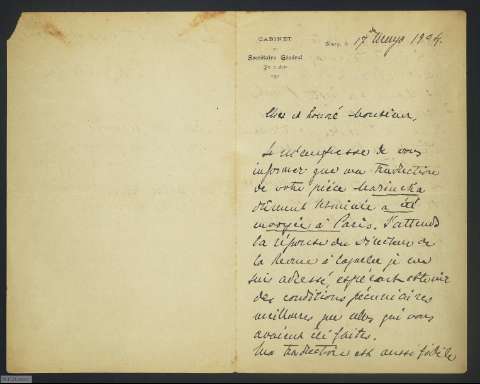 CABINET
Secrétaire Général
17 Mars 1904.
Cher et honoré Monsieur,
Je m'empresse de vous
informer que ma traduction
de votre pièce Marincka
dûment terminée a été
envoyée à Paris. J'attends
la réponse du Directeur de
la Revue à laquelle je me
suis adressé, espérant obtenir
des conditions pécuniaires
meilleures que celles qui vous
avaient été faites.
Ma traduction est aussi fidèle